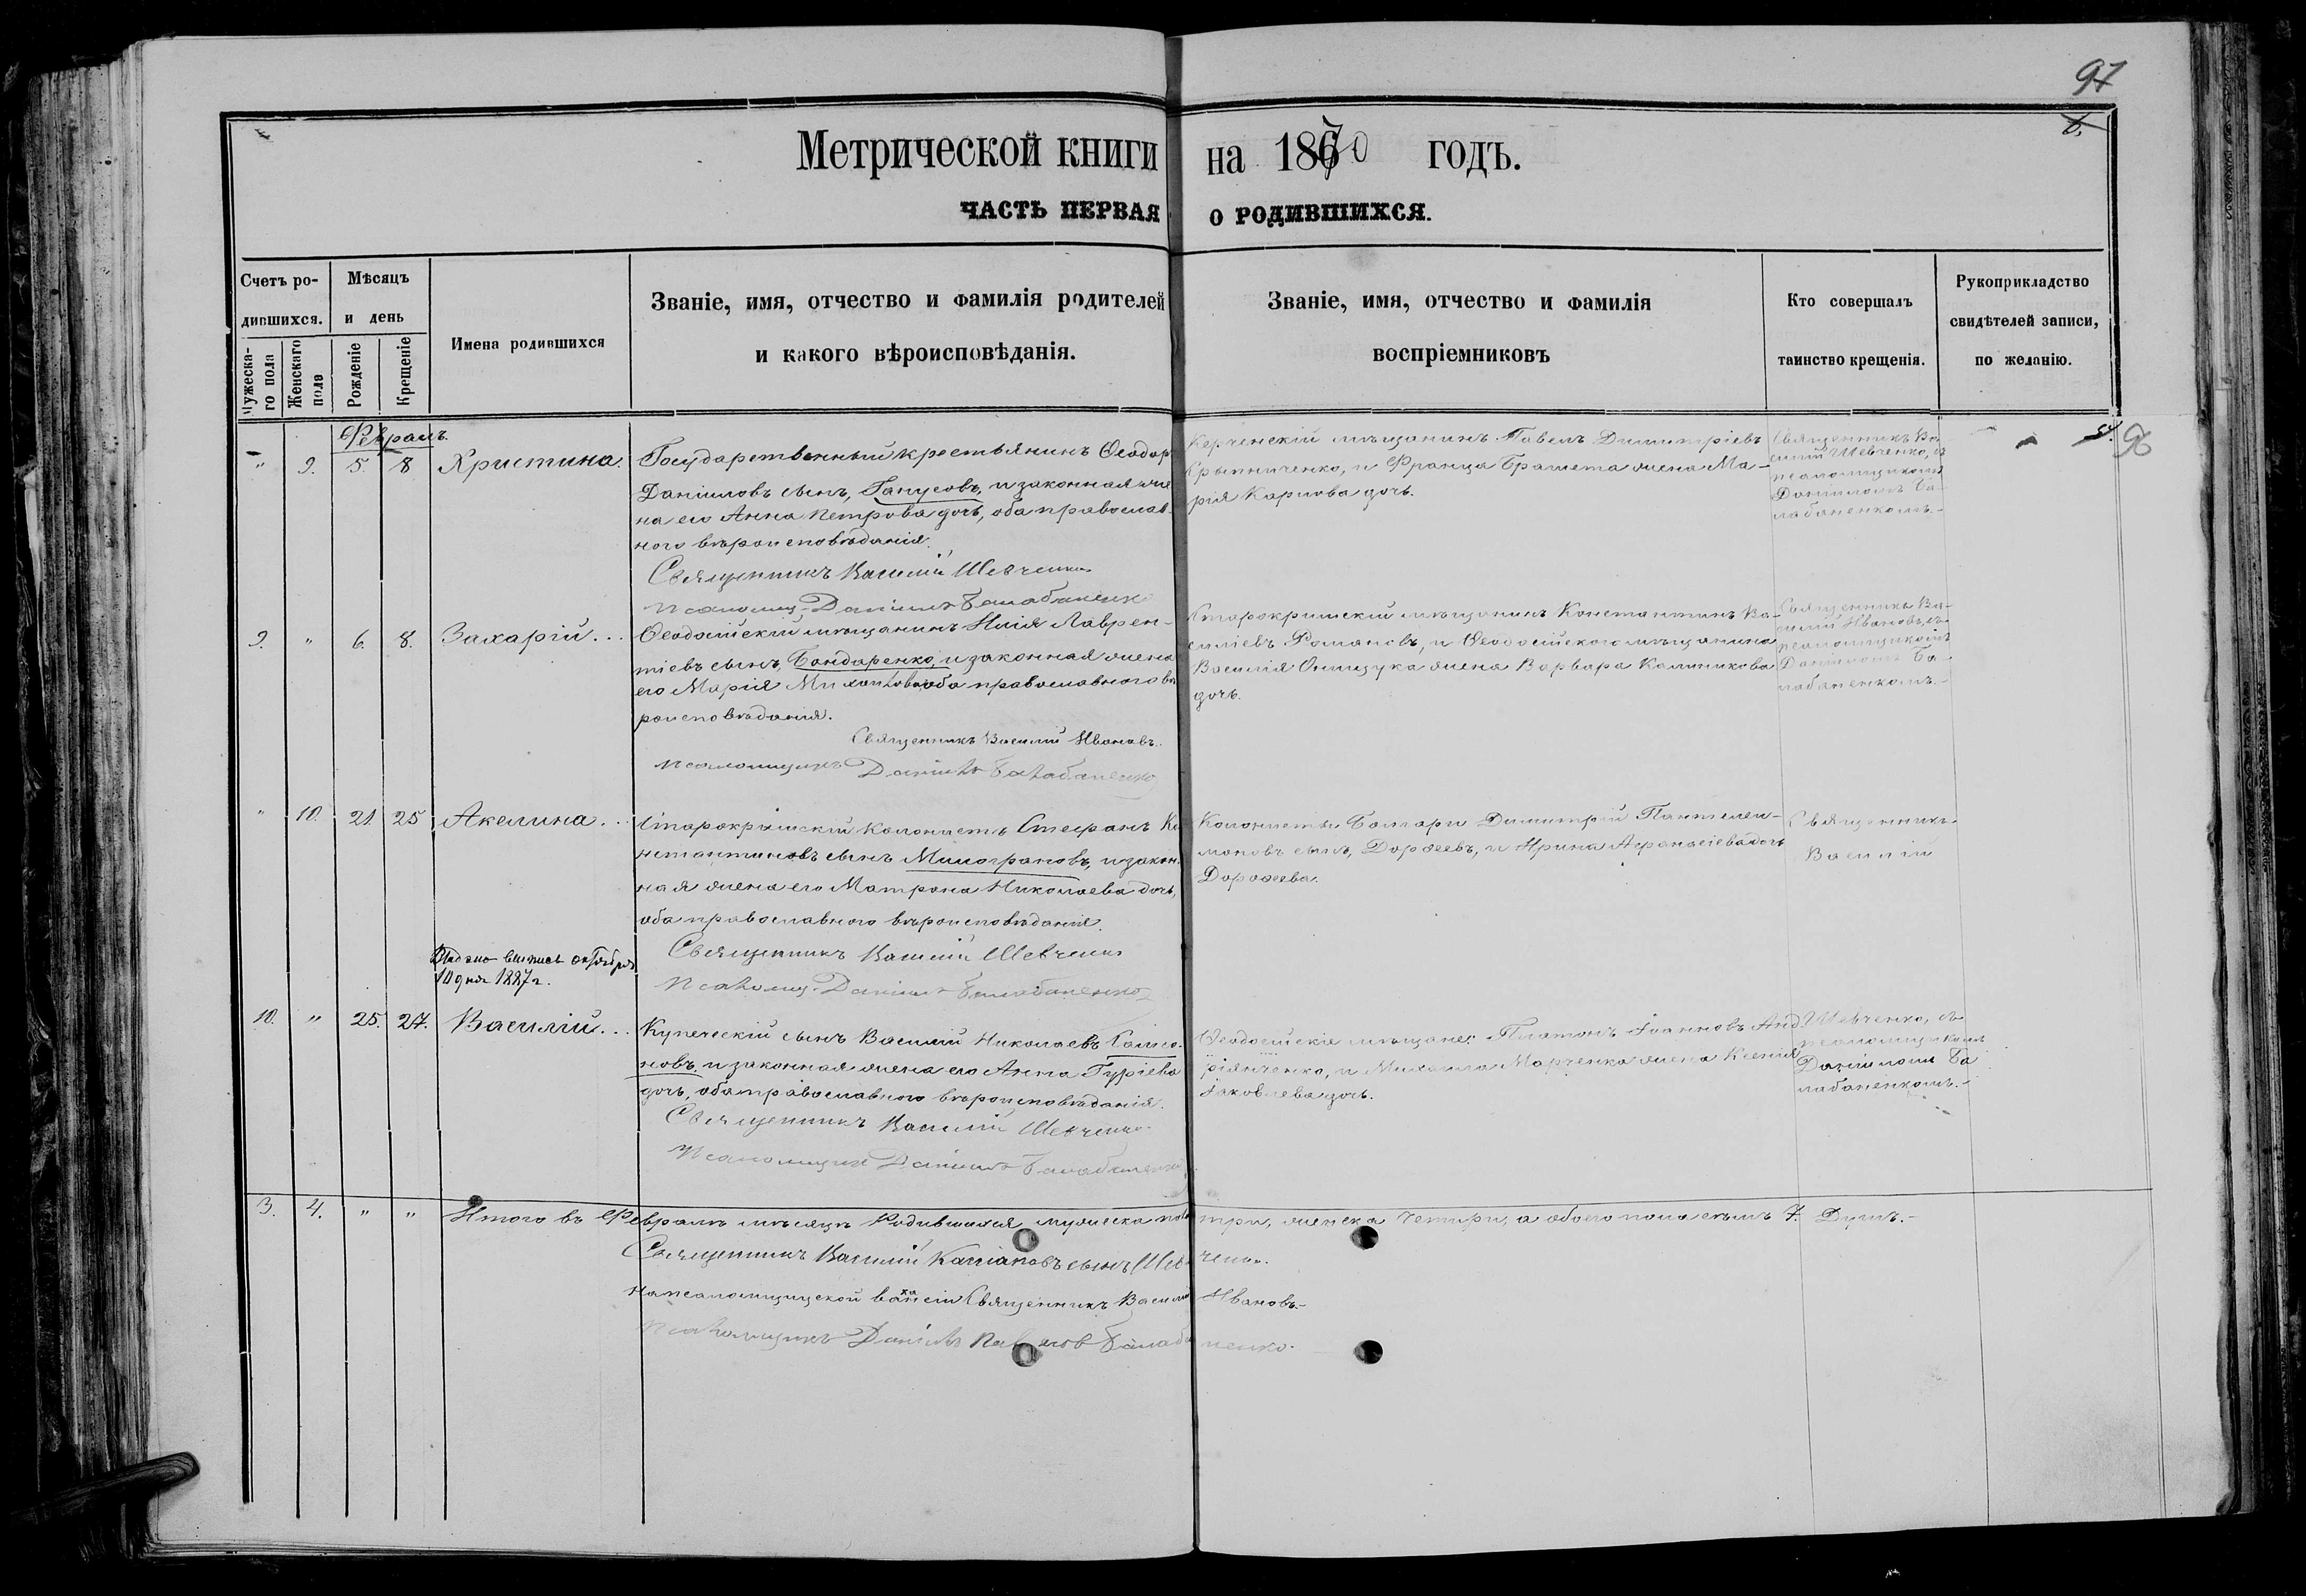 97
Метрической книги на 1870 годъ.
ЧАСТЬ ПЕРВАЯ О РОДИВШИХСЯ.
Счетъ родившихся.
Мужескаго пола
Женскаго пола
Мѣсяцъ и день
Рожденіе
Крещеніе
Имена родившихся
Званіе, имя, отчество и фамилія родителей
и какого вѣроисповѣданія.
Званіе, имя, отчество и фамилія
воспріемниковъ
Кто совершалъ
таинство крещенія.
Рукоприкладство
свидѣтелей записи,
по желанію.
96
Февраль.
" 9. 5 8 Христина.
Государственный крестьянинъ Ѳеодоръ
Даніиловъ сынъ, и законная же-
на его Анна Петрова дочь, оба православ-
ного вѣроисповѣданія.
Священникъ Василій Шевченко
Псаломщ. Даніилъ Балабаненко
Керченскій мѣщанинъ Павелъ Димитріевъ
и Франца жена Ма-
рія Карпова дочь.
Священникъ Ва-
силій Шевченко, съ
псаломщикомъ
Даніиломъ Ба-
лабаненкомъ.-
9. " 6. 8. Захарій...
Ѳеодосійскій мѣщанинъ Илія Лаврен-
тіевъ сынъ, Бондаренко, и законная жена
его Марія оба православного вѣ
роисповѣданія.
Священникъ Василій Ивановъ.
Псаломщикъ Даніилъ Балабаненко
Старокрымскій мѣщанинъ Константинъ Ва-
силіевъ Романовъ, и Ѳеодосійского мѣщанина
Василія Онищука жена Варвара Калиникова
дочь.
Священникъ Ва-
силій Ивановъ, съ
псаломщикомъ
Даніиломъ Ба-
лабаненкомъ.-
" 10. 21. 25 Акелина...
Старокрымскій колонистъ Стефанъ Ко
нстантиновъ сынъ и закон.
ная жена его Матрона Николаева дочь,
оба православного вѣроисповѣданія.
Священникъ Василій Шевченко
Псаломщ. Даніилъ Балабаненко
Колонисты Болгари Димитрій Пантелеи-
моновъ сынъ, Дорожевъ, и Ирина Афанасіева дочь
Дорожева.
Священникъ
Василій
Шевченко, съ
псаломщикомъ
Даніиломъ Ба
лабаненкомъ.-
Видано выпись октября
10 дня 1887 г.
10. " 25. 27. Василій...
Купеческій сынъ Василій Николаевъ
и законная жена его Анна Гуріева
дочь, оба православного вѣроисповѣданія.
Священникъ Василій Шевченко
Псаломщикъ Даніилъ Балабаненко
Ѳеодосійскіе мѣщане: Платонъ Іоанновъ Анд
ріянченко, и Михаила Марченка жена Ксенія
Іаковлева дочь.
3. 4. " " Итого въ Февралѣ мѣсяцѣ Родившихся мужеска пола три, женска четыри, а обоего пола семь 7. Душъ.-
Священникъ Василій Кассіановъ сынъ Шевченко.
На псаломщицской ваκансіи Священникъ Василій Ивановъ.-
Псаломщикъ Даніилъ Павловъ Балабаненко.